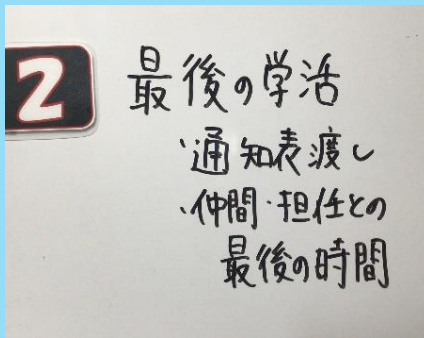 2
最後の学活
・通知表渡し
・仲間・担任との
最後の時間